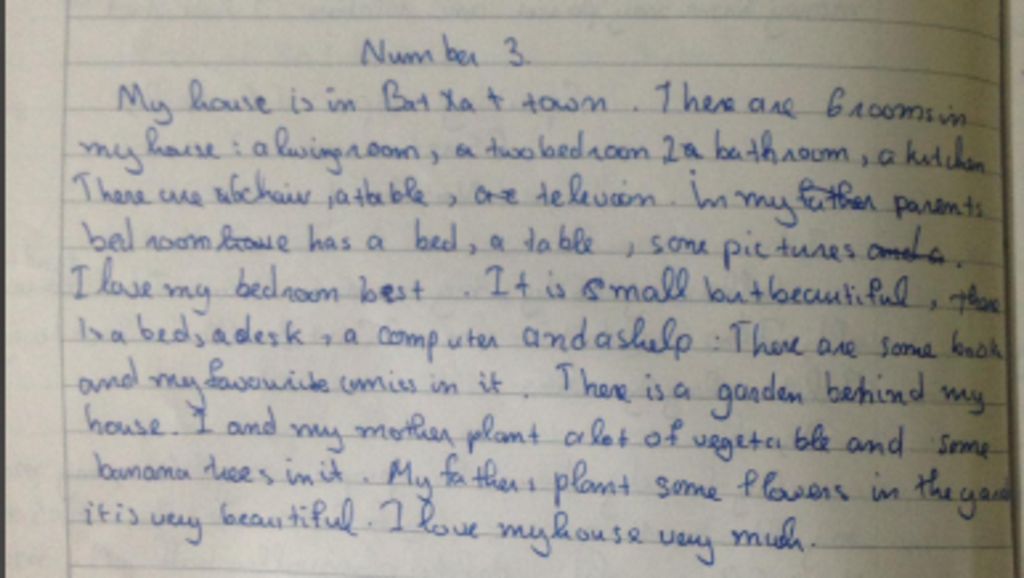 Number 3
My house is in Bat Xat town. There are 6 rooms in
my house : a livingroom, a two bedroom 2a bathroom, a kitchen
There are chair, a table, televison. In my father parents
bed room have has a bed, a table, some pictures and a.
I love my bedroom best. It is small but beautiful, there
is a bed, a desk, a computer and a shelp. There are some book
and my favourite comics in it. There is a garden behind my
house. I and my mother plant a lot of vegetable and some
banana trees in it. My father plant some flowers in the yard
it is very beautiful. I love my house very much.